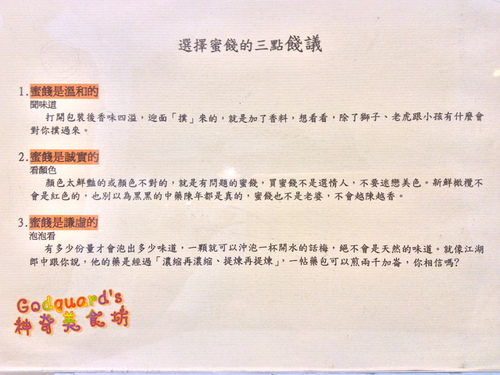 選擇蜜餞的三點餞議
1.蜜餞是溫和的
聞味道
打開包裝後香味四溢，迎面「撲」來的，就是加了香料，想看看，除了獅子、老虎跟小孩有什麼會
對你撲過來。
2.蜜餞是誠實的
看顏色
顏色太鮮豔的或顏色不對的，就是有問題的蜜餞，買蜜餞不是選情人，不要迷戀美色。新鮮橄欖不
會是紅色的，也別以為黑黑的中藥陳年都是真的，蜜餞也不是老婆，不會越陳越香。
3.蜜餞是謙虛的
泡泡看
有多少份量才會泡出多少味道，一顆就可以沖泡一杯開水的話梅，絕不會是天然的味道。就像江湖
郎中跟你說，他的藥是經過「濃縮再濃縮、提煉再提煉」，一帖藥包可以煎兩千加崙，你相信嗎?
Godquard's
神奇美食坊